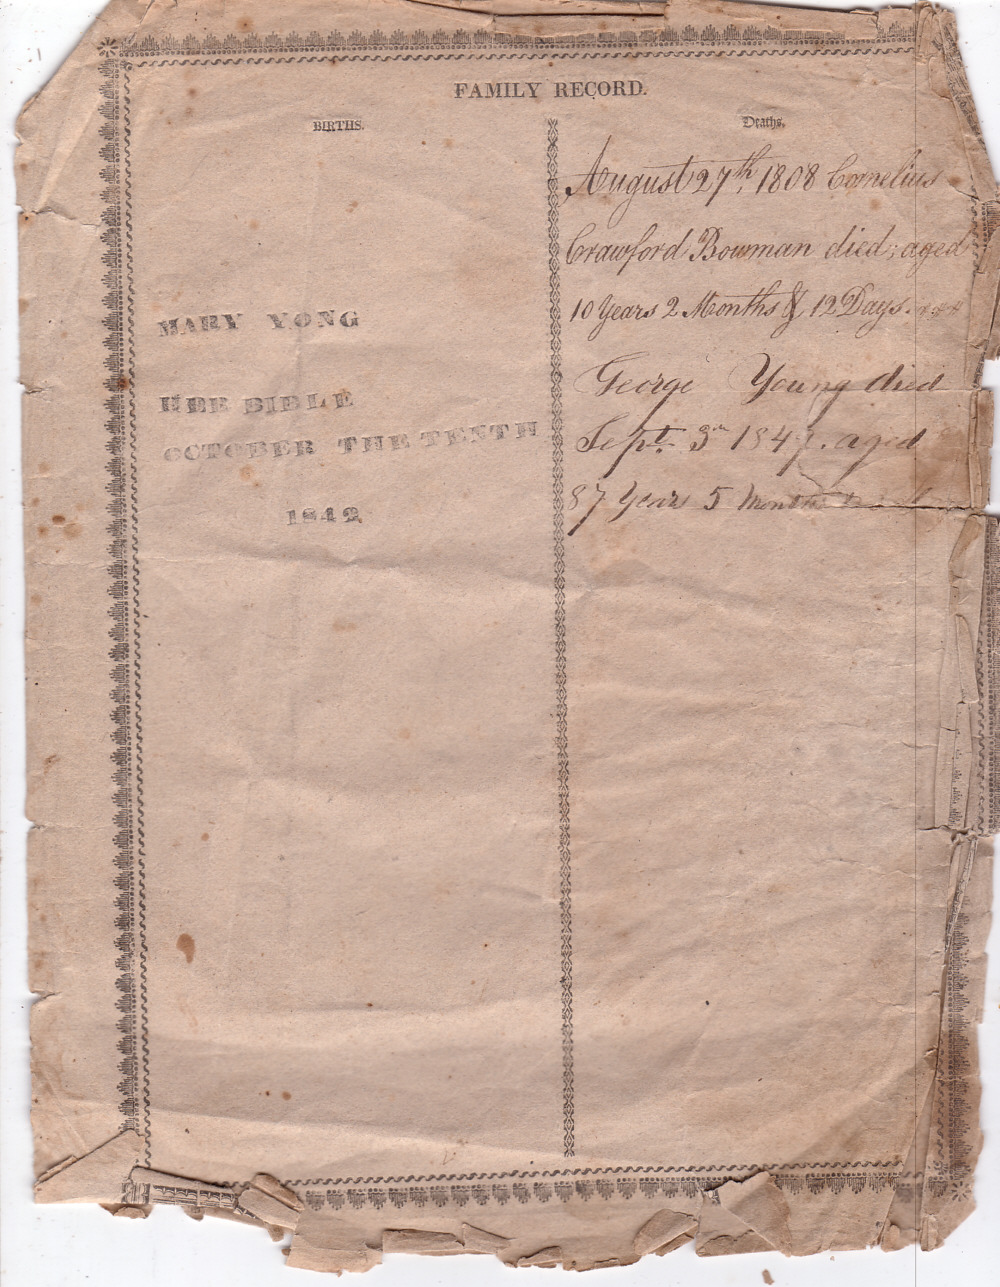 FAMILY RECORD.
BIRTHS.
MARY YONG
HER BIBLE
OCTOBER THE TENTH
1842
Deaths.
August 27th 1808 Cornelius
Crawford Bowman died, aged
10 Years 2 Months & 12 Days
George Young died
Sept. 3rd 184 aged
87 Years 5 Months